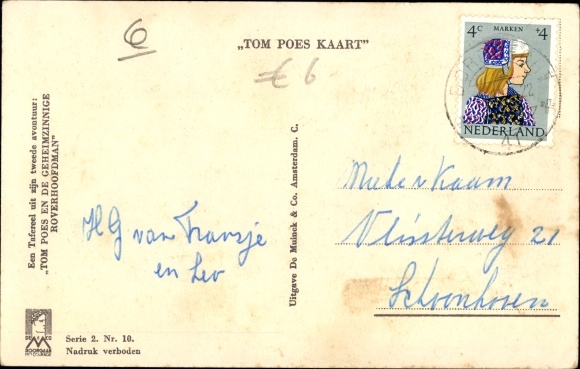 6
„TOM POES KAART”
€ 6
4c MARKEN +4
NEDERLAND
41
Een Tafereel uit zijn tweede avontuur:
„TOM POES EN DE GEHEIMZINNIGE
ROVERHOOFDMAN”
HG van Fransje
en Leo
Uitgave De Muinck & Co. Amsterdam. C.
Vlinterweg 21
Schoonhoven
Serie 2. Nr. 10.
Nadruk verboden